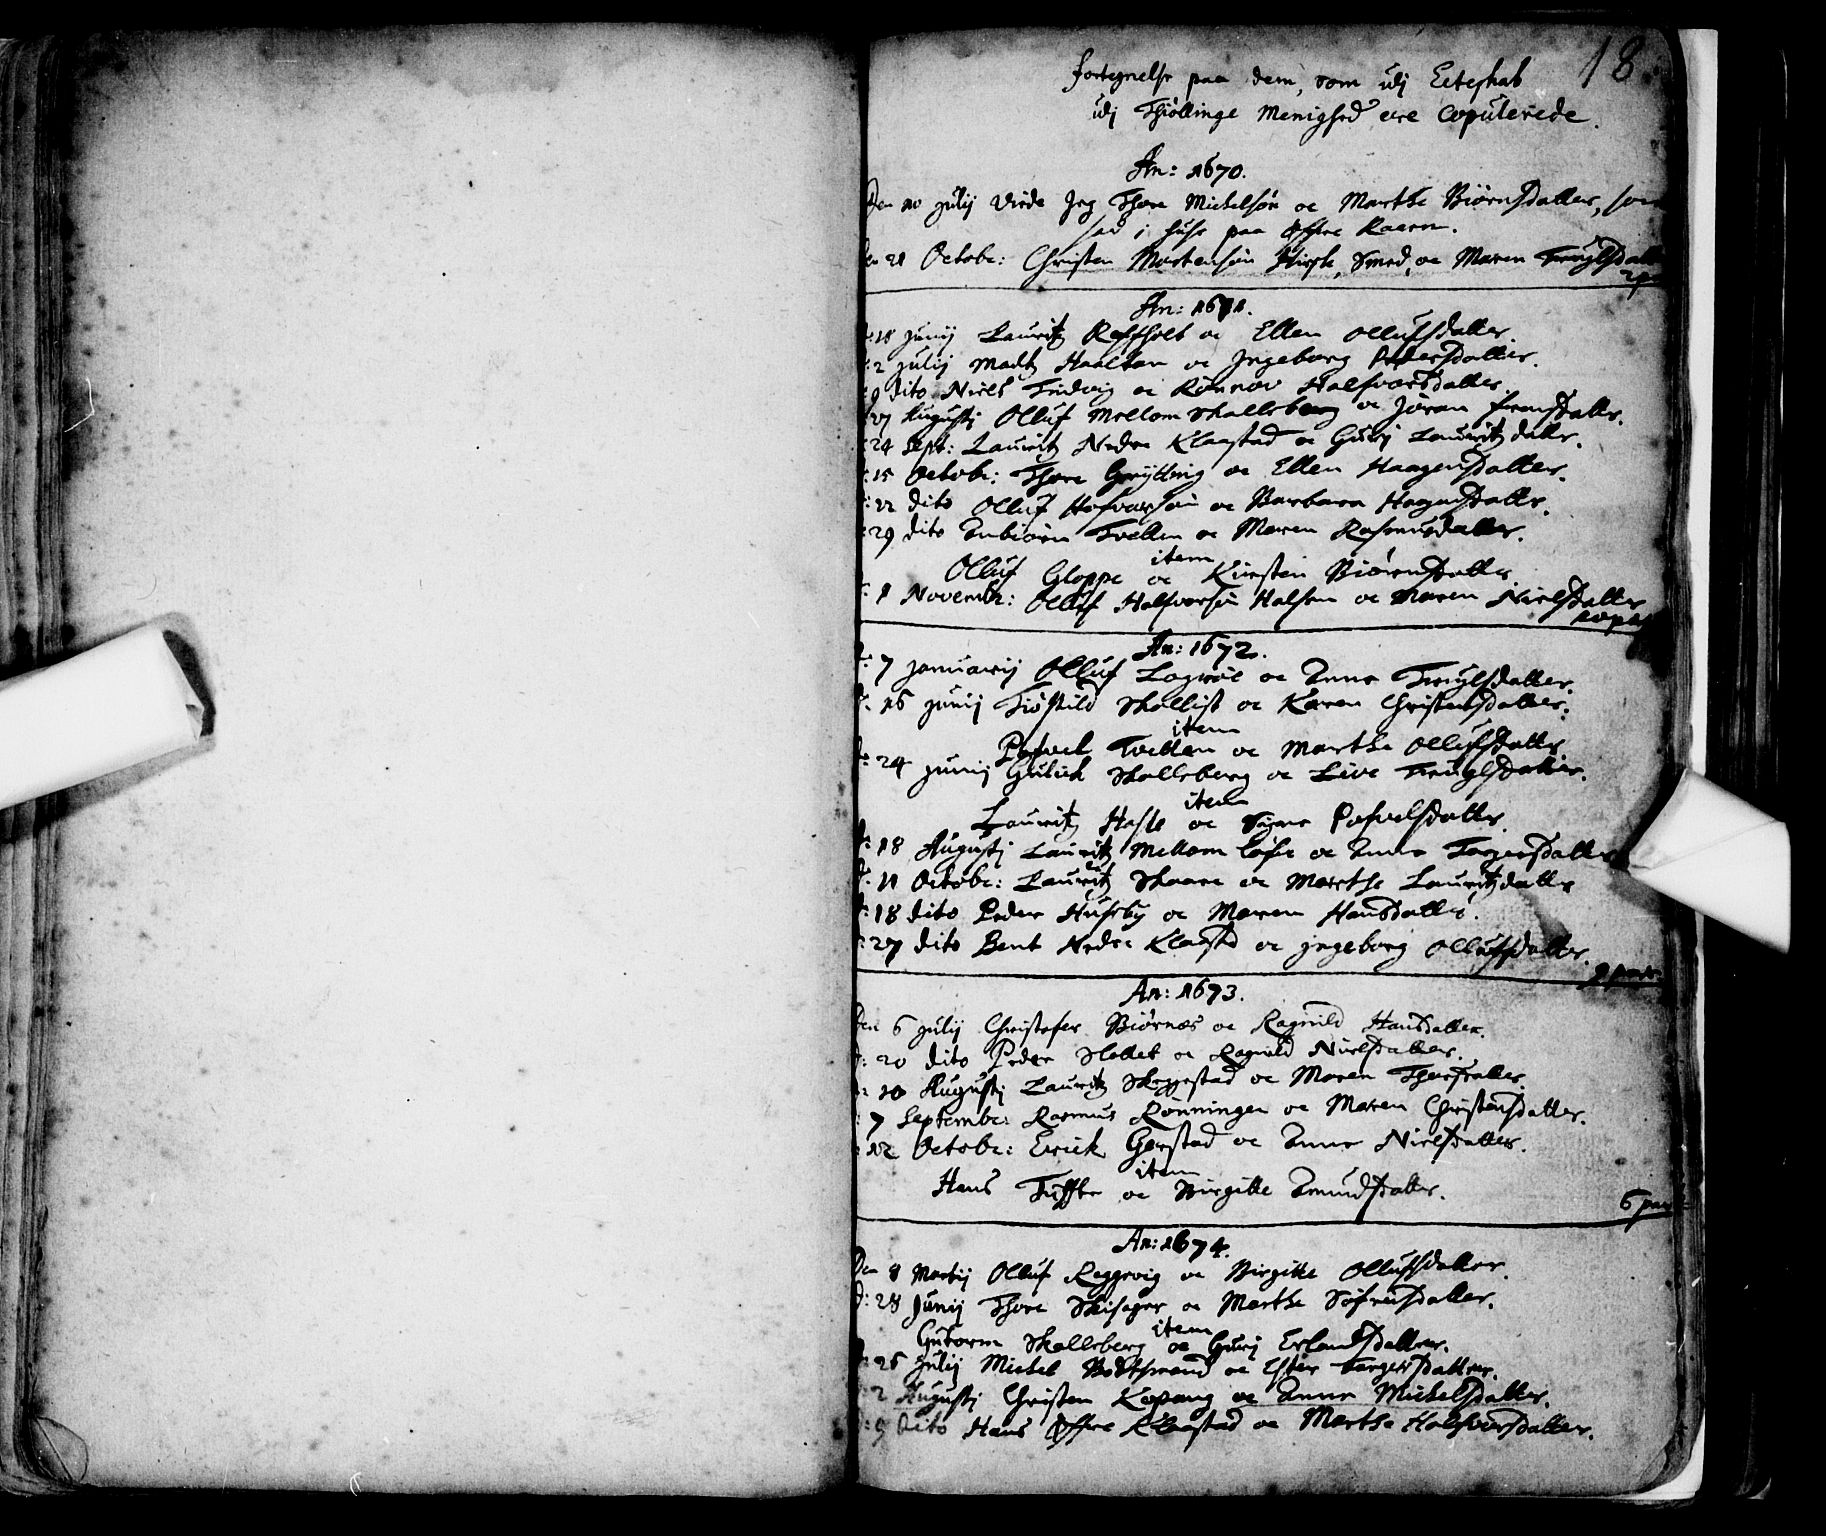 18
fortegnelse paa dem, som udj Ecteskab
udj Thiöllinge Menighed ere Copulerede.
An: 1670.
Den 10 Julij viede Jeg Thore Michelsön oc Marthe Biörnsdatter, som
sad i huse paa Øffre Raaen.
21 Octobr: Christen Mortensön Hirsk, Smed, oc Maren Truglsdatt
2 p
An: 1671.
18 Junij Lauritz Røffholt oc Ellen Olluffsdatter.
2 Julij Madtz Haaltan oc Jngeborg Pedersdatter.
9 dito Niels Tredvig oc Rönnov Halfvorsdatter.
27 Augustj Olluf Mellom Skalleberg oc Jöran fransdatter.
24 Sept: Lauritz Nedre Klaastad oc Gurj Lauritzdatter.
15 Octobr: Thore Grytting oc Ellen Haagensdatter.
22 dito Olluf Hofvorsön oc Barbara Hagensdatter.
29 dito Anbiörn Tvetten oc Maren Rasmusdatter.
item
Olluf Gloppe oc Kirsten Biörnsdatter
1 Novembr: Olluf Halfvorsön Halsen oc Maren Nielsdatter
10 par
An: 1672.
7 Januarij Olluf Lagerøe oc Anne Truglsdatter.
16 Junij Kiöstild Skallist oc Karen Christensdatter.
item
Pofvel Tvetten oc Marthe Olluffsdatter
24 Junij Gulick Skalleberg oc Live Truglsdatter.
item
Lauritz Hasle oc Signe Pofvelsdatter.
18 Augustj Lauritz Mellom Löfe oc Anne Torgersdatter
11 Octobr: Lauritz Skaare oc Marthe Lauritzdatter
18 dito Peder Huseby oc Maren Hansdatter.
27 dito Bent Nedre Klaastd oc Jngeborg Olluffsdatter.
9 par
An: 1673.
Den 6 Julij Christofer Biörnæs oc Ragnild Hansdatter.
20 dito Peder Slottet oc Ragnild Nielsdatter.
10 Augustj Lauritz Skeggestad oc Maren Thorsdatter.
7 Septembr: Rasmus Rönningen oc Maren Christensdatter.
12 Octobr: Erick Gerstad oc Anne Nielsdatter.
item
Hans Tuffte oc Birgitte Amundsdatter.
6 par
An: 1674.
Den 8 Martij Olluf Reggevig oc Birgitte Olluffsdatter.
d: 28 Junij Thore Skisager oc Marthe Söfrensdatter.
item
Guttorm Skalleberg oc Gurj Erlandsdatter.
26 Julij Michel Bodtsmand oc Ester Torgersdatter.
2 Augustj Christen Kopang oc Anne Michelsdatter.
9 dito Hans Øffre Klaastad oc Marthe Halfvorsdatter.